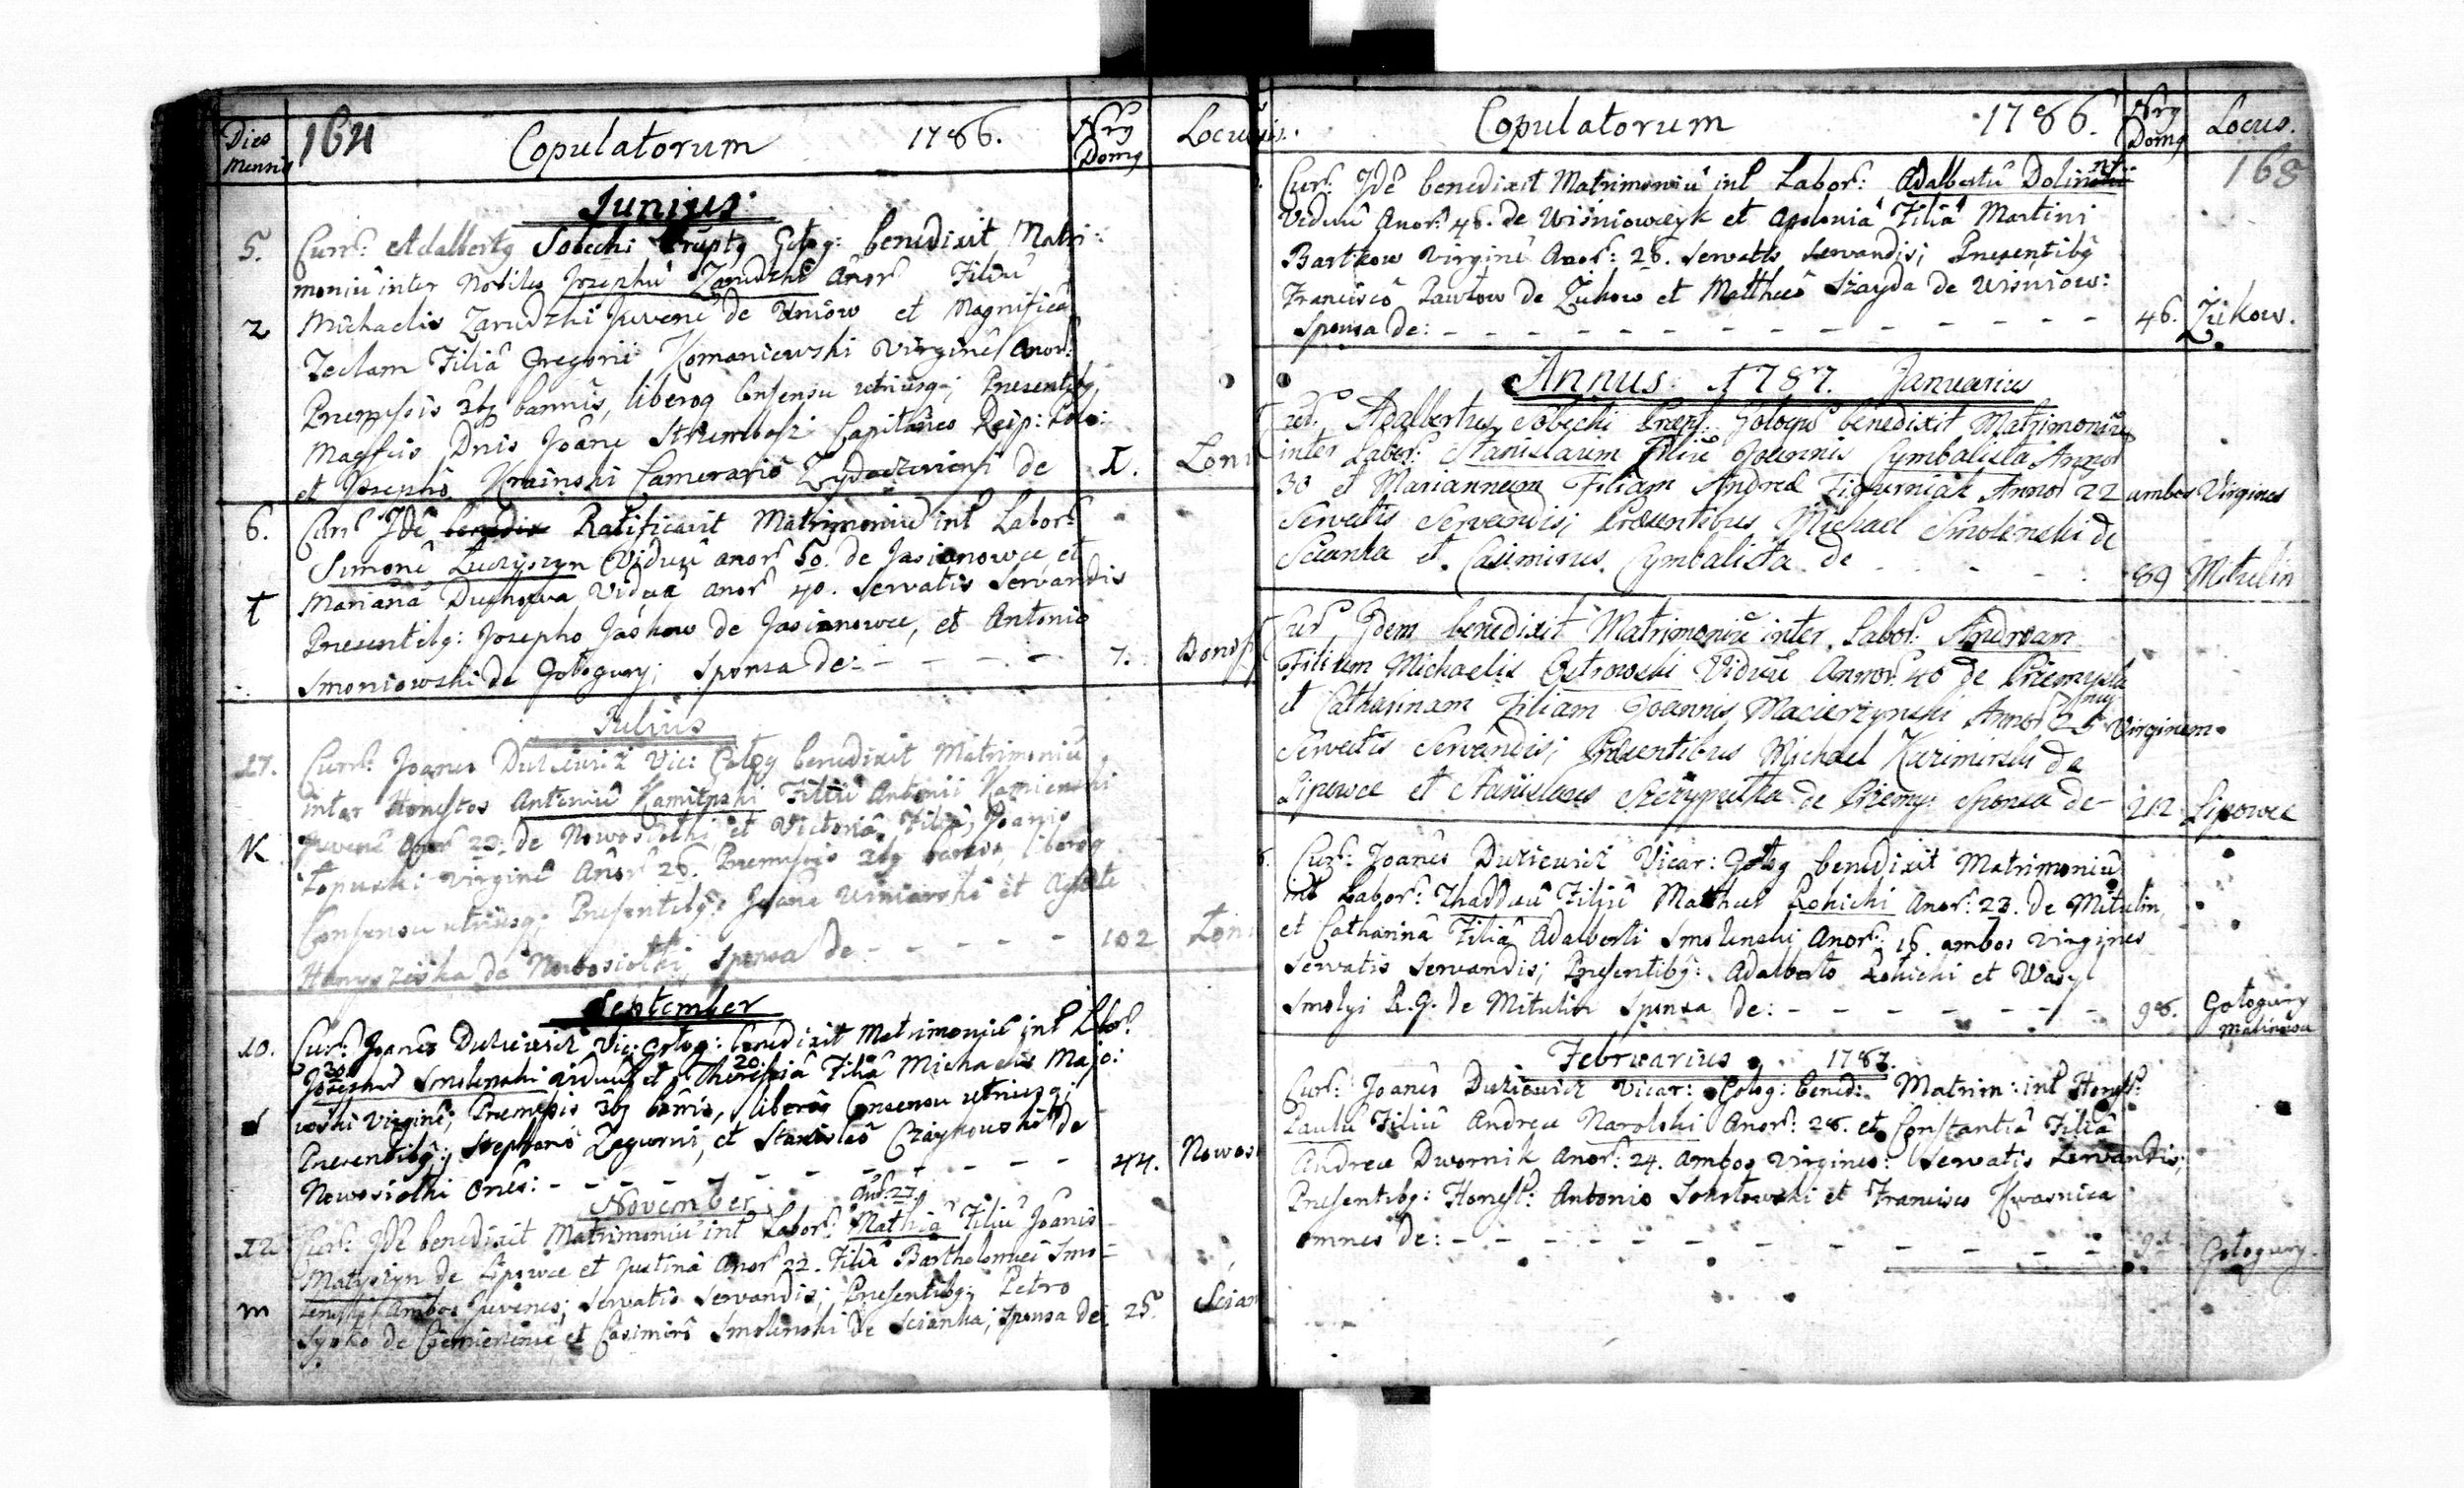 Dies Mensis 164 Copulatorum 1786. Nrg Domg Locus
Junius
5. Curr: Adalbertg Sobecki Prúptg Gotog: benedixit Matri:
moniu inter Nobiles Josephu Zarudzki Anor Filiu
2 Michaelis Zarudzki Juvene de Uniow et Magnifica
Teclam Filia Gregorii Komaniewski Virgine Anor:
Premissis 3bg bannis, liberoq Consensu utriusq; Presentibg,
Magfcis Dnis Joane Capitaneo
et Josepho Krainski Camerario de I. Loni
6. Curr Idê benedix Ratificavit Matrimoniu int Labor:
Simone Luczyszyn Viduu anor 50. de Jasionowce, et
t Mariana Vidua anor 40. servatis servandis
Presentibg: Josepho Jaśkow de Jasionowce, et Antonio
Smoniowski de Gotogury; sponsa de: - - - - - 7.
Julius
17. Curr: Joanes Duziewicz Vic: Gotog benedixit Matrimoniu
inter Honestos Antoniu Kamienski Filiu Antonii Kamienski
K Juvene Anor 23. de Nowosiolki et Victoria, Filia Joanis
Lopuski Virgine Anor 26. Premissis 3bg bannis, liberoq
Consensu utriusq; Presentibg: Joane Usniarski et
de Nowosiolki, Sponsa de - - - - - 102 Loni
September
10. Curr: Joanes Duziewicz Vic: Gotog: benedixit Matrimoniu int Labor:
30 20
Josephu Smolenski viduu et Theressia Filia Michaelis Majo:
wski Virgine; Premissis 3bg bannis, liberoq Consensu utriusq;
Presentibg: Stephano Zegurni, et Stanislao Czaykowski de
Nowosiolki Ones: - - - - - - - - - 44. Nowos
November Anor: 27.
12 Curr: Idê benedixit Matrimoniu int Labor: Mathia Filiu Joanis
Matyszyn de Lipowce et Justina Anor 22. Filia Bartholomei Smo-
m lenski, Ambos Juvenes; servatis servandis; Presentibg: Petro
Sysko de et Casimiro Smolenski de Scianka; sponsa de: 25. Scian
Copulatorum 1786. Nrg Domg Locus.
168
Curr: Idê benedixit Matrimoniu int Labor: Adalbertu Dolinski
Viduu Anor: 48. de Wisniowczyk et Apolonia Filia Martini
Bartkow Virgine Anor: 28. servatis servandis; Presentibg
Francisco Pawlow de Zukow et Mattheo Szayda de Wisniow:
Sponsa de: - - - - - - - - - - - - 46. Żukow.
Annus: 1787. Januarius
Curr. Adalbertus Sobecki Prept Gologus benedixit Matrimoniu
inter Labor: Stanislaum Filiu Joannis Cymbalista Annor
30 et Mariannam Filiam Andreæ Figurniak Annor 22 ambos Virgines
Servatis Servandis; Præsentibus Michael Smolenski de
Scianka et Casimirus Cymbalista de - - - - 89 Mitulin
Curr. Idem benedixit Matrimoniu inter Labor: Andream
Filium Michaelis Ostrowski Viduu Annor 40 de Przemysla
et Catharinam Filiam Joannis Macierzynski Annor 25 Virginem
Servatis Servandis; Præsentibus Michael Kazimirski de
Lipowce et Stanislaus de Przemy: Sponsa de - 212 Lipowce
Curr: Joanes Duziewicz Vicar: Gotog benedixit Matrimoniu
int Labor: Thaddæu Filiu Matthei Rohicki Anor: 23. de Mitulin,
et Catharina Filia Adalberti Smolenski Anor: 16 ambos virgines
servatis servandis; Presentibg: Adalberto Rohicki et Wasyl
Smolyi R.G. de Mitulin Sponsa de: - - - - - - - 98. Gotogury
Februarius 1787.
Curr: Joanes Duziewicz Vicar: Gotog: bened: Matrim: int Honest:
Paulu Filiu Andreæ Narolski Anor: 28. et Constantia Filia
Andreæ Dwornik Anor: 24. Ambos Virgines: Servatis Servandis;
Presentibg: Honest: Antonio Sokolowski et Francisco Kwasnica
omnes de: - - - - - - - - - - Gotogury.